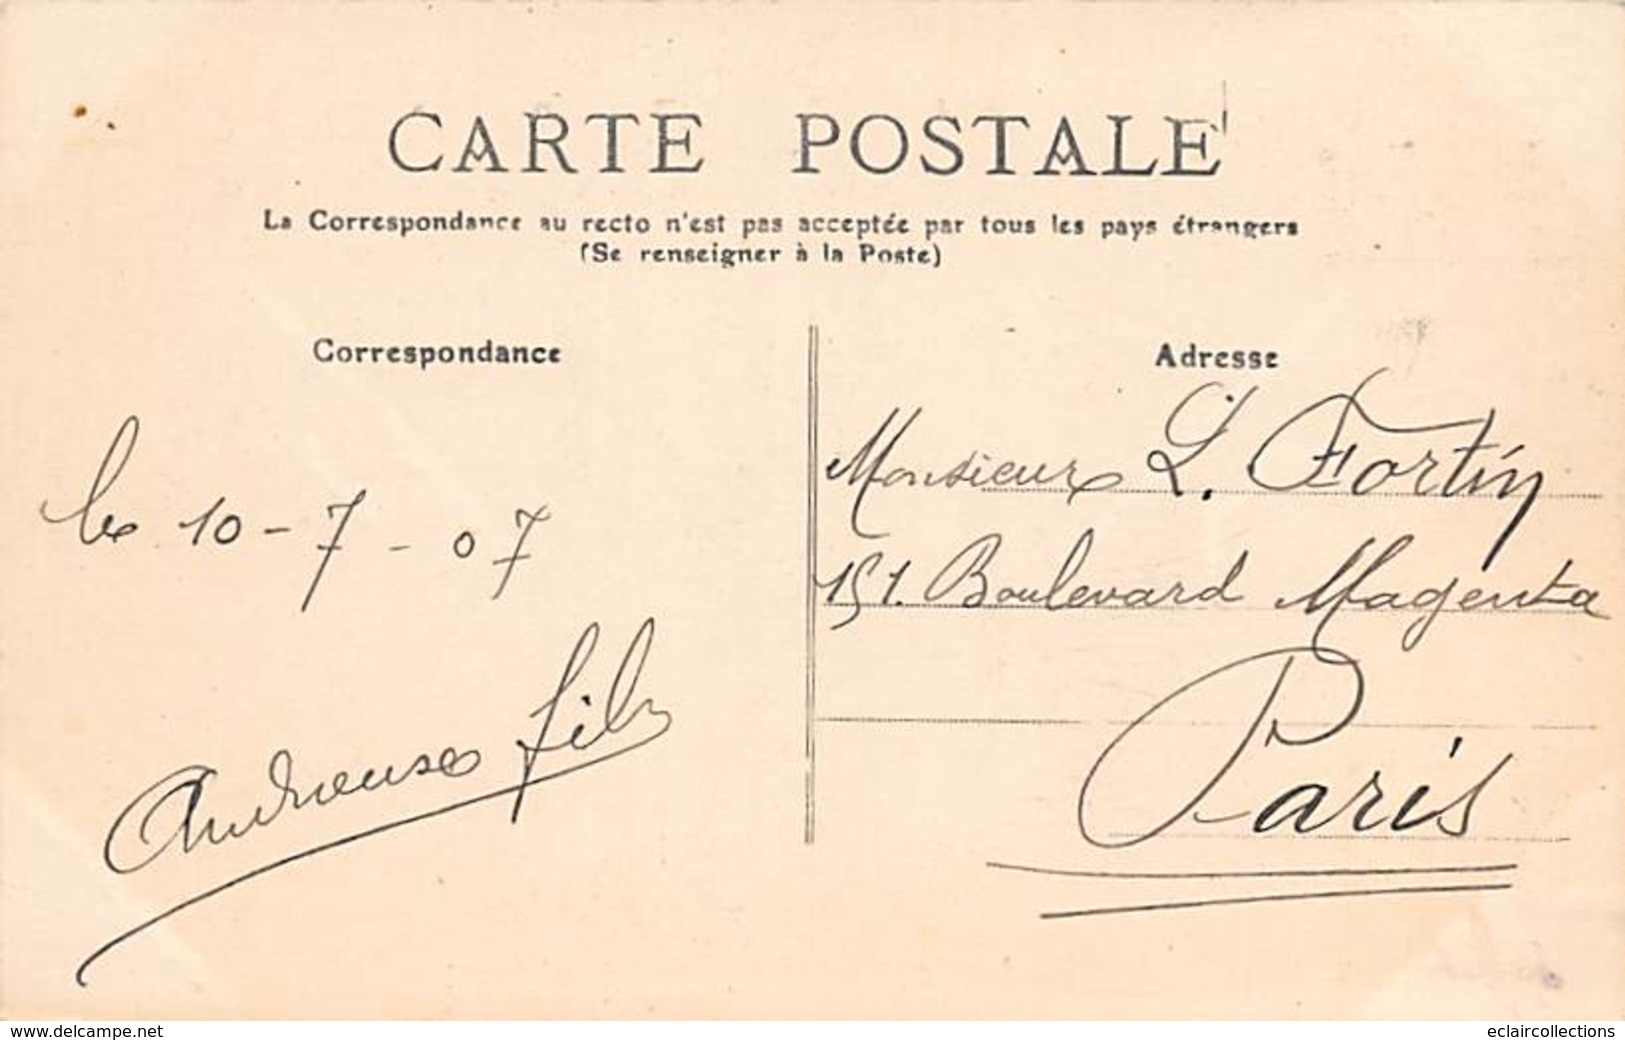 CARTE POSTALE
La Correspondance au recto n'est pas acceptée par tous les pays étrangers
(Se renseigner à la Poste)
Correspondance
Adresse
le 10 - 7 - 07
fils
Monsieur L. Fortin
151. Boulevard Magenta
Paris
www.delcampe.net
eclaircollections